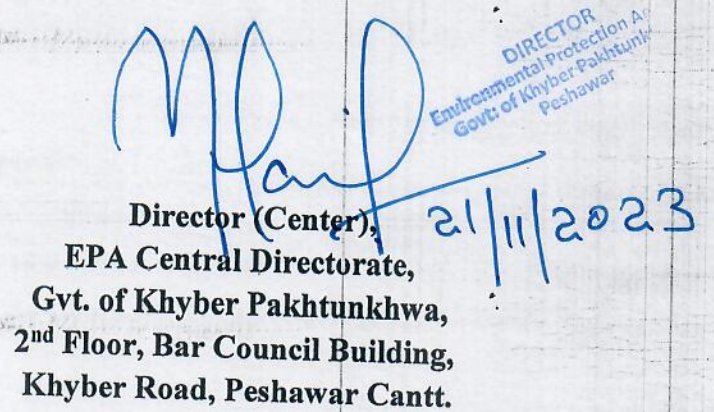 DIRECTOR
Environmental Protection A
Govt: of Khyber Pakhtunk
Peshawar
21/11/2023
Director (Center),
EPA Central Directorate,
Gvt. of Khyber Pakhtunkhwa,
2nd Floor, Bar Council Building,
Khyber Road, Peshawar Cantt.